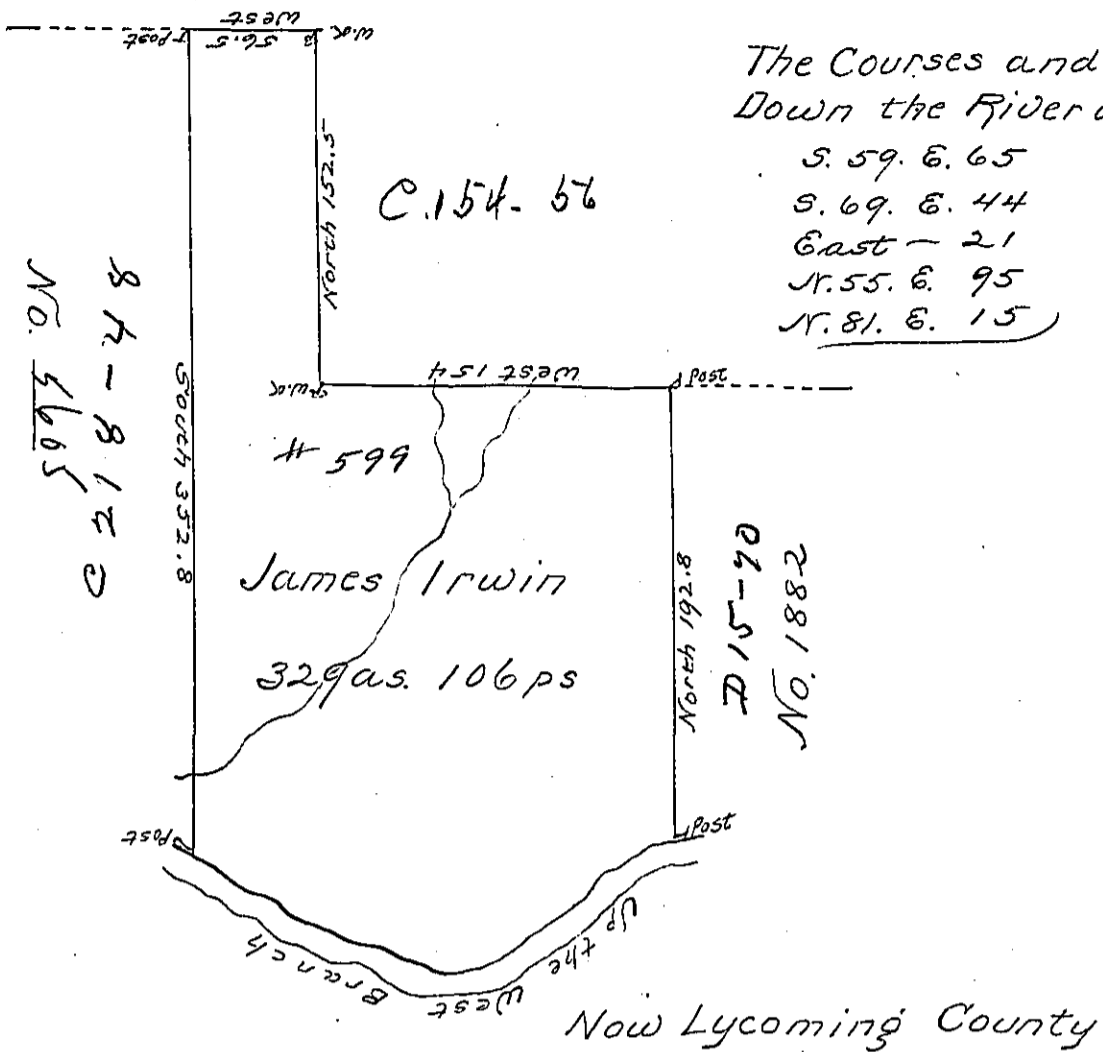 West
Post
56.5
W.O.
The Courses and
Down the River
S. 59. E. 65
S. 69. E. 44
East — 21
N. 55. E. 95
N. 81. E. 15
North 152.5
C. 154 - 56
C 218 - 48
No.
South 352.8
W.O.
West 154
Post
# 599
James Irwin
329 as. 106 ps
North 192.8
No. 1882
Post
Post
Up the
West
Branch
Now Lycoming County